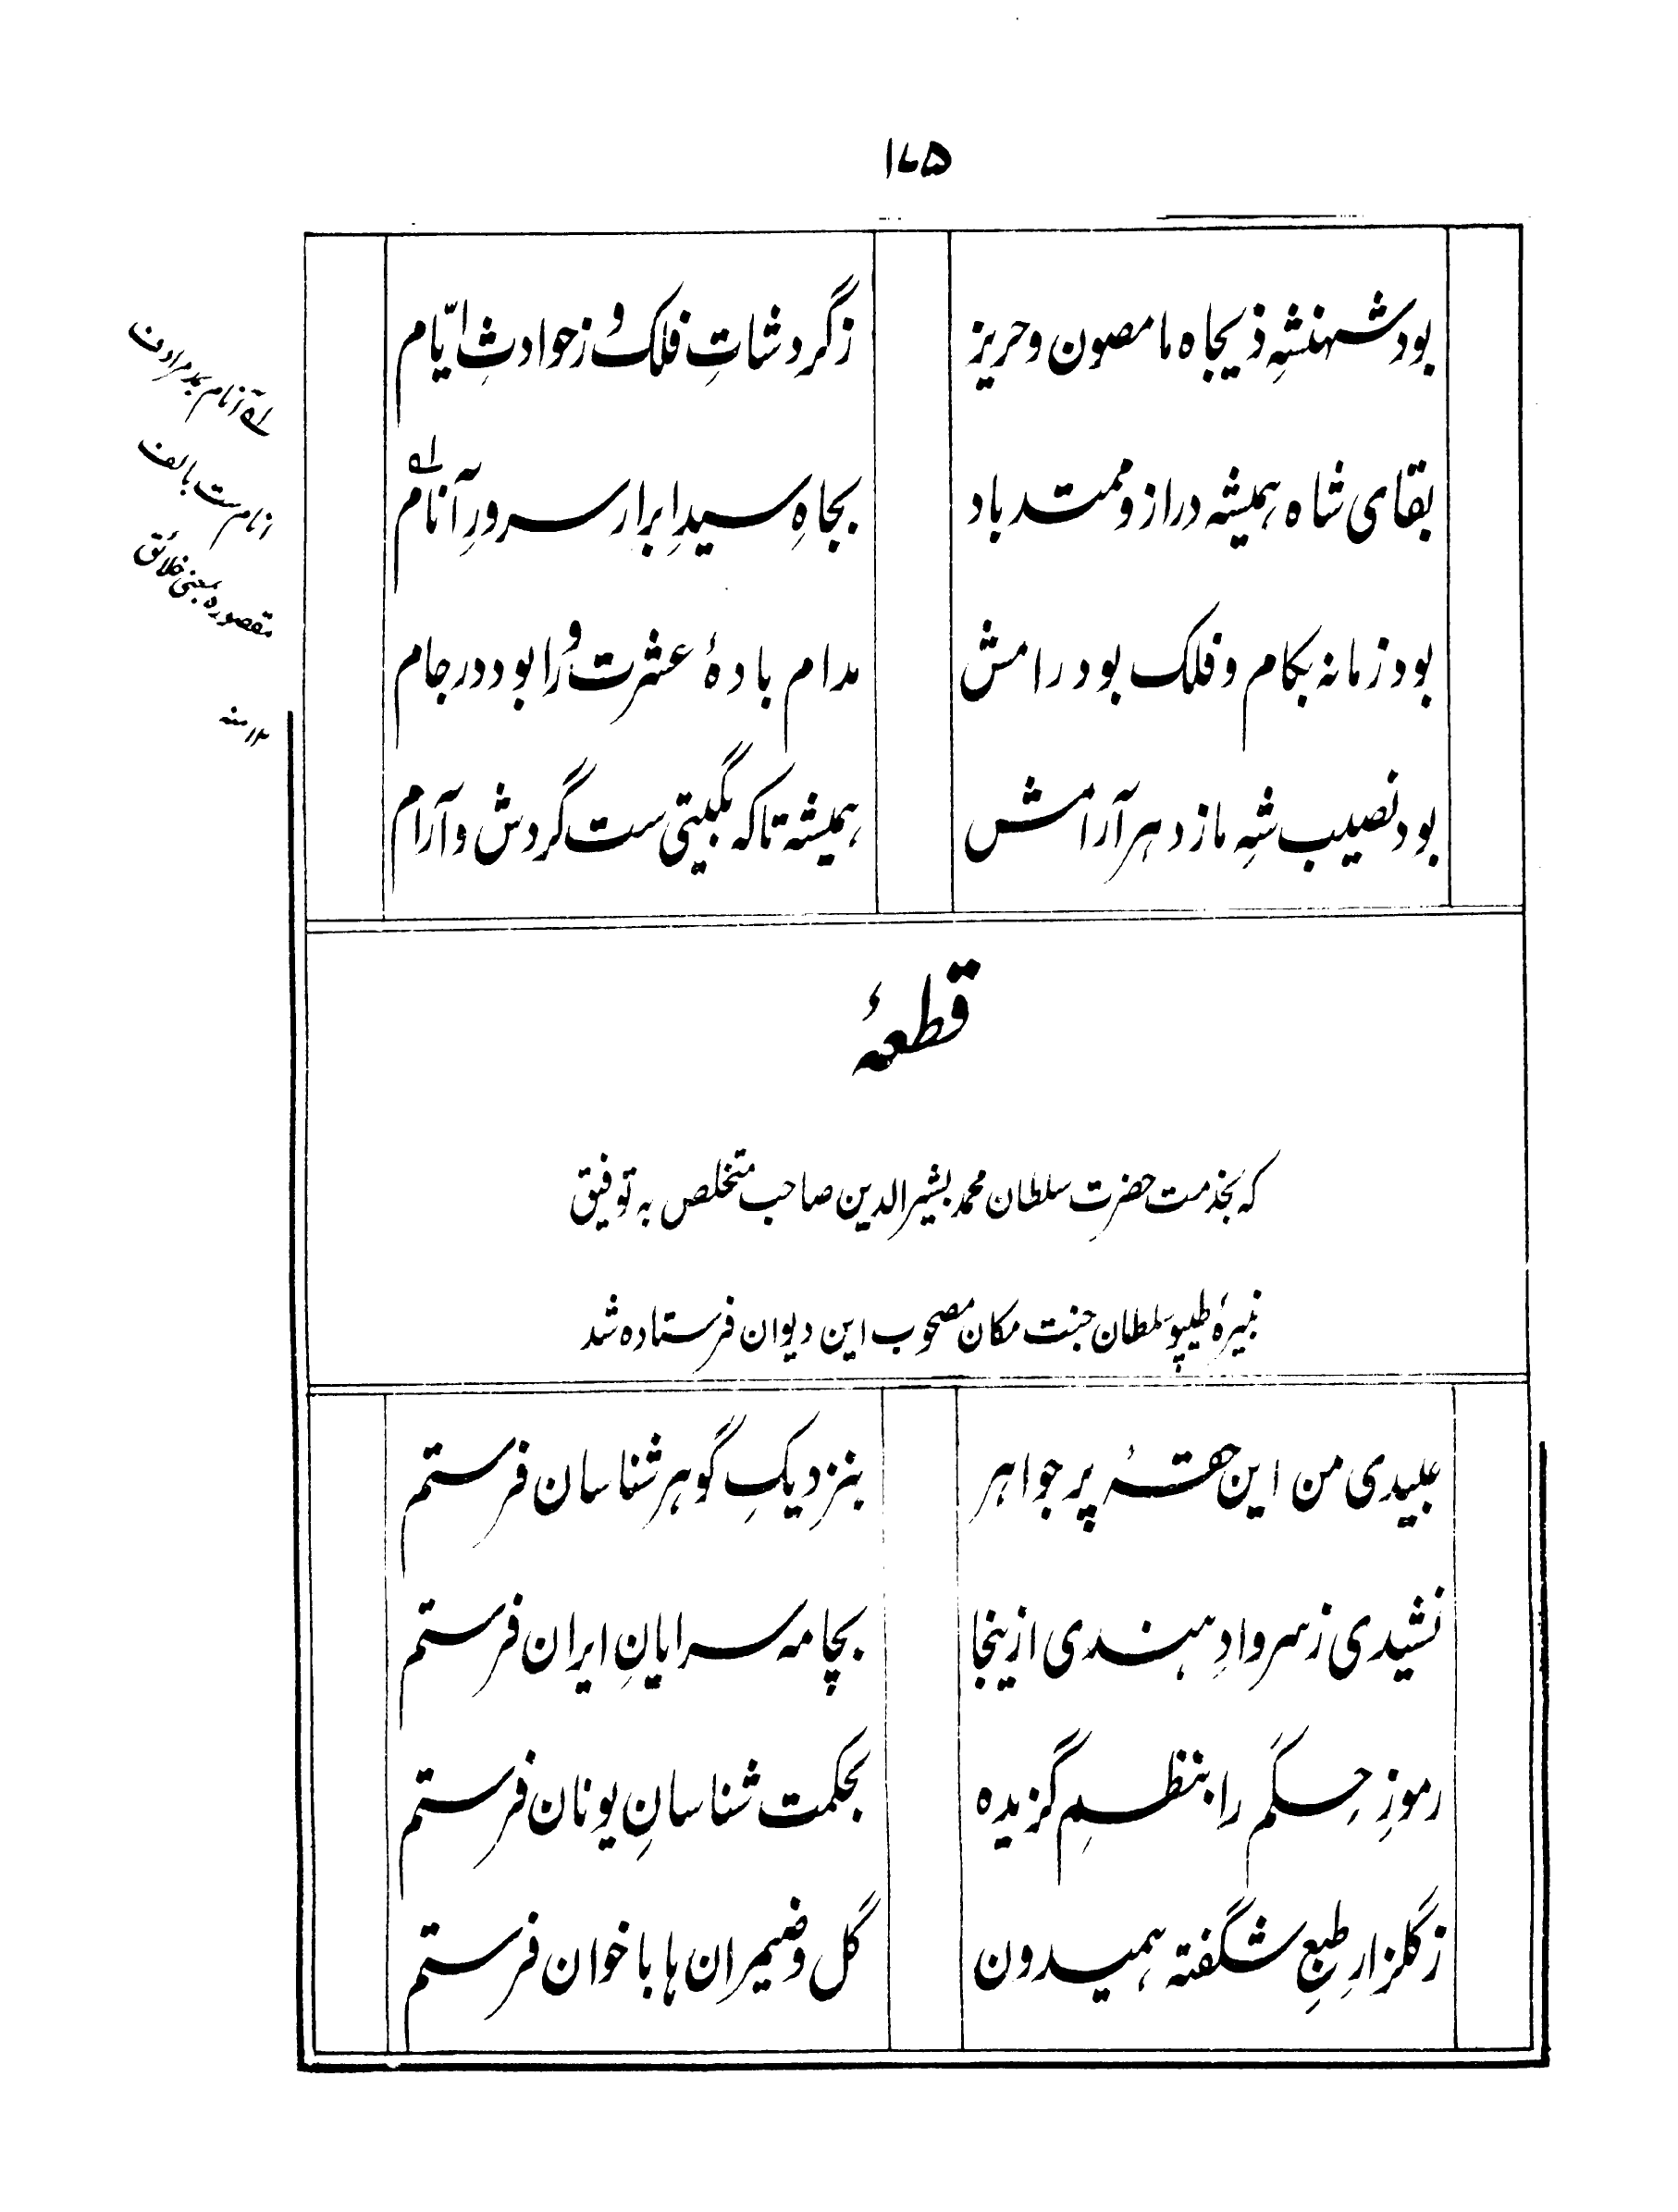 ۱۷۵
بود شهنشهِ ذیجاه ما مصون و حریز
ز گردشاتِ فلک و ز حوادثِ ایّام
بقای شاه همیشه دراز و ممتد باد
بجاهِ سیدِ ابرار سرورِ آنام
بود زمانه بکام و فلک بود رامش
مدام بادۀ عشرت ورا بود در جام
بود نصیب شهِ ما ز دهر آرامش
همیشه تا که بگیتی ست گردش و آرام
لے آنام بمد مرادف
انام ست بالف
مقصوره بمعنی خلائق
۱۲ منه
قطعۀ
که بخدمت حضرت سلطان محمد بشیرالدین صاحب متخلص به توفیق
نبیرۀ طیپو سلطان جنت مکان مصحوب این دیوان فرستاده شد
عبیدی من این حقۀ پر جواهر
بنزدیکِ گوهر شناسان فرستم
نشیدی ز سروادِ هندی ازینجا
بچامه سرایانِ ایران فرستم
رموزِ حِکَم را بنظمِ گزیده
بحکمت شناسانِ یونان فرستم
ز گلزارِ طبعِ شگفته همیدون
گل و ضیمران ها باخوان فرستم